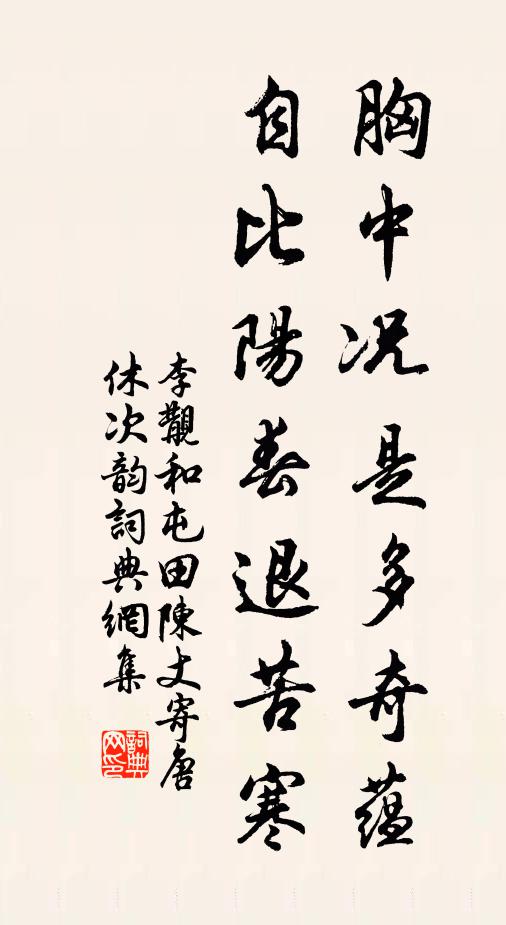 胸中况是多奇蕴
自比陽春退苦寒
李覯和屯田陳丈寄唐
休次韵詞典網集
詞典
网印